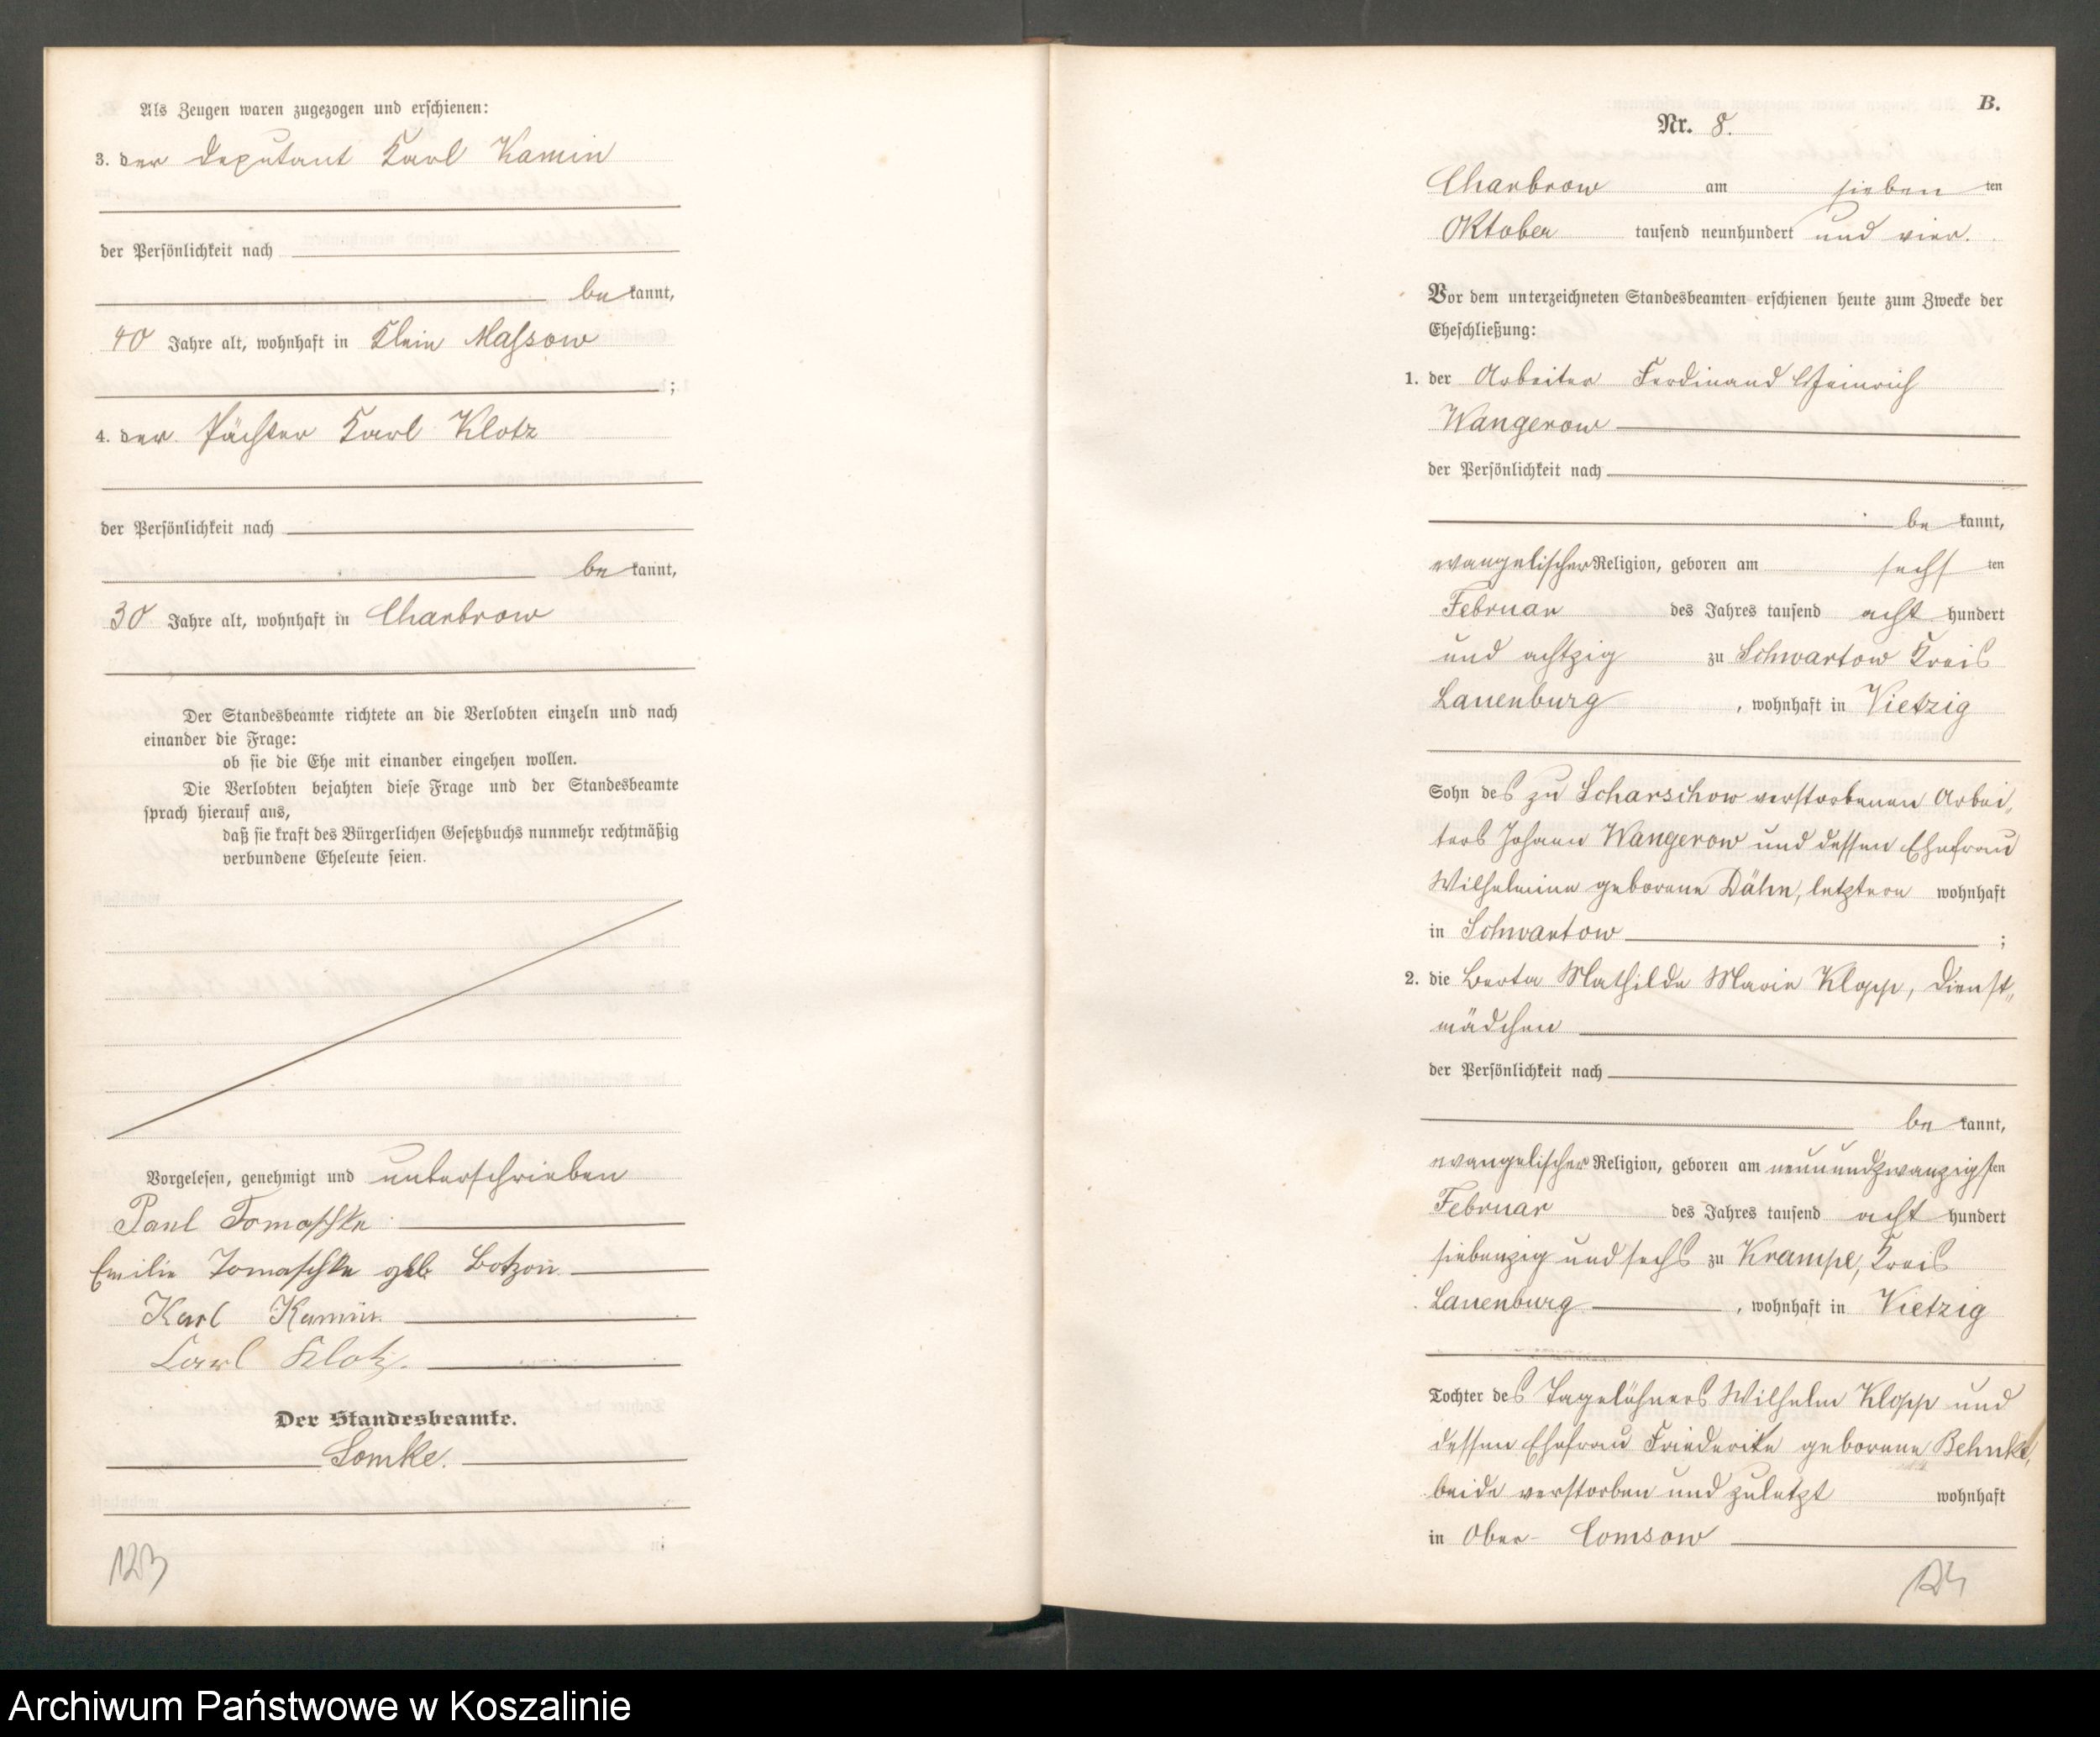 Als Zeugen waren zugezogen und erschienen:
3. der Deputant Karl Kamin
der Persönlichkeit nach
be kannt,
40 Jahre alt, wohnhaft in Klein Massow
;
4. der Pächter Karl Klotz
der Persönlichkeit nach
be kannt,
30 Jahre alt, wohnhaft in Charbrow
Der Standesbeamte richtete an die Verlobten einzeln und nach
einander die Frage:
ob sie die Ehe mit einander eingehen wollen.
Die Verlobten bejahten diese Frage und der Standesbeamte
sprach hierauf aus,
daß sie kraft des Bürgerlichen Gesetzbuchs nunmehr rechtmäßig
verbundene Eheleute seien.
Vorgelesen, genehmigt und unterschrieben
Paul Tomaschke
Emilie Tomaschke geb. Botzon
Karl Kamin
Carl Klotz.
Der Standesbeamte.
Lomke.
123
B.
Nr. 8.
Charbrow am sieben ten
Oktober tausend neunhundert und vier.
Vor dem unterzeichneten Standesbeamten erschienen heute zum Zwecke der
Eheschließung:
1. der Arbeiter Ferdinand Heinrich
Wangerow
der Persönlichkeit nach
be kannt,
evangelischer Religion, geboren am sechs ten
Februar des Jahres tausend acht hundert
und achtzig zu Schwartow Kreis
Lauenburg, wohnhaft in Vietzig
Sohn des zu Scharschow verstorbenen Arbei,
ters Johann Wangerow und dessen Ehefrau
Wilhelmine geborene Dähn, letztere wohnhaft
in Schwartow ;
2. die Berta Mathilde Marie Klopp, Dienst„
mädchen
der Persönlichkeit nach
be kannt,
evangelischer Religion, geboren am neunundzwanzigsten
Februar des Jahres tausend acht hundert
siebenzig und sechs zu Krampe, Kreis
Lauenburg, wohnhaft in Vietzig
Tochter des Tagelöhners Wilhelm Klopp und
dessen Ehefrau Friederike geborene Behnke,
beide verstorben und zuletzt wohnhaft
in Ober-Comsow
124
Archiwum Państwowe w Koszalinie